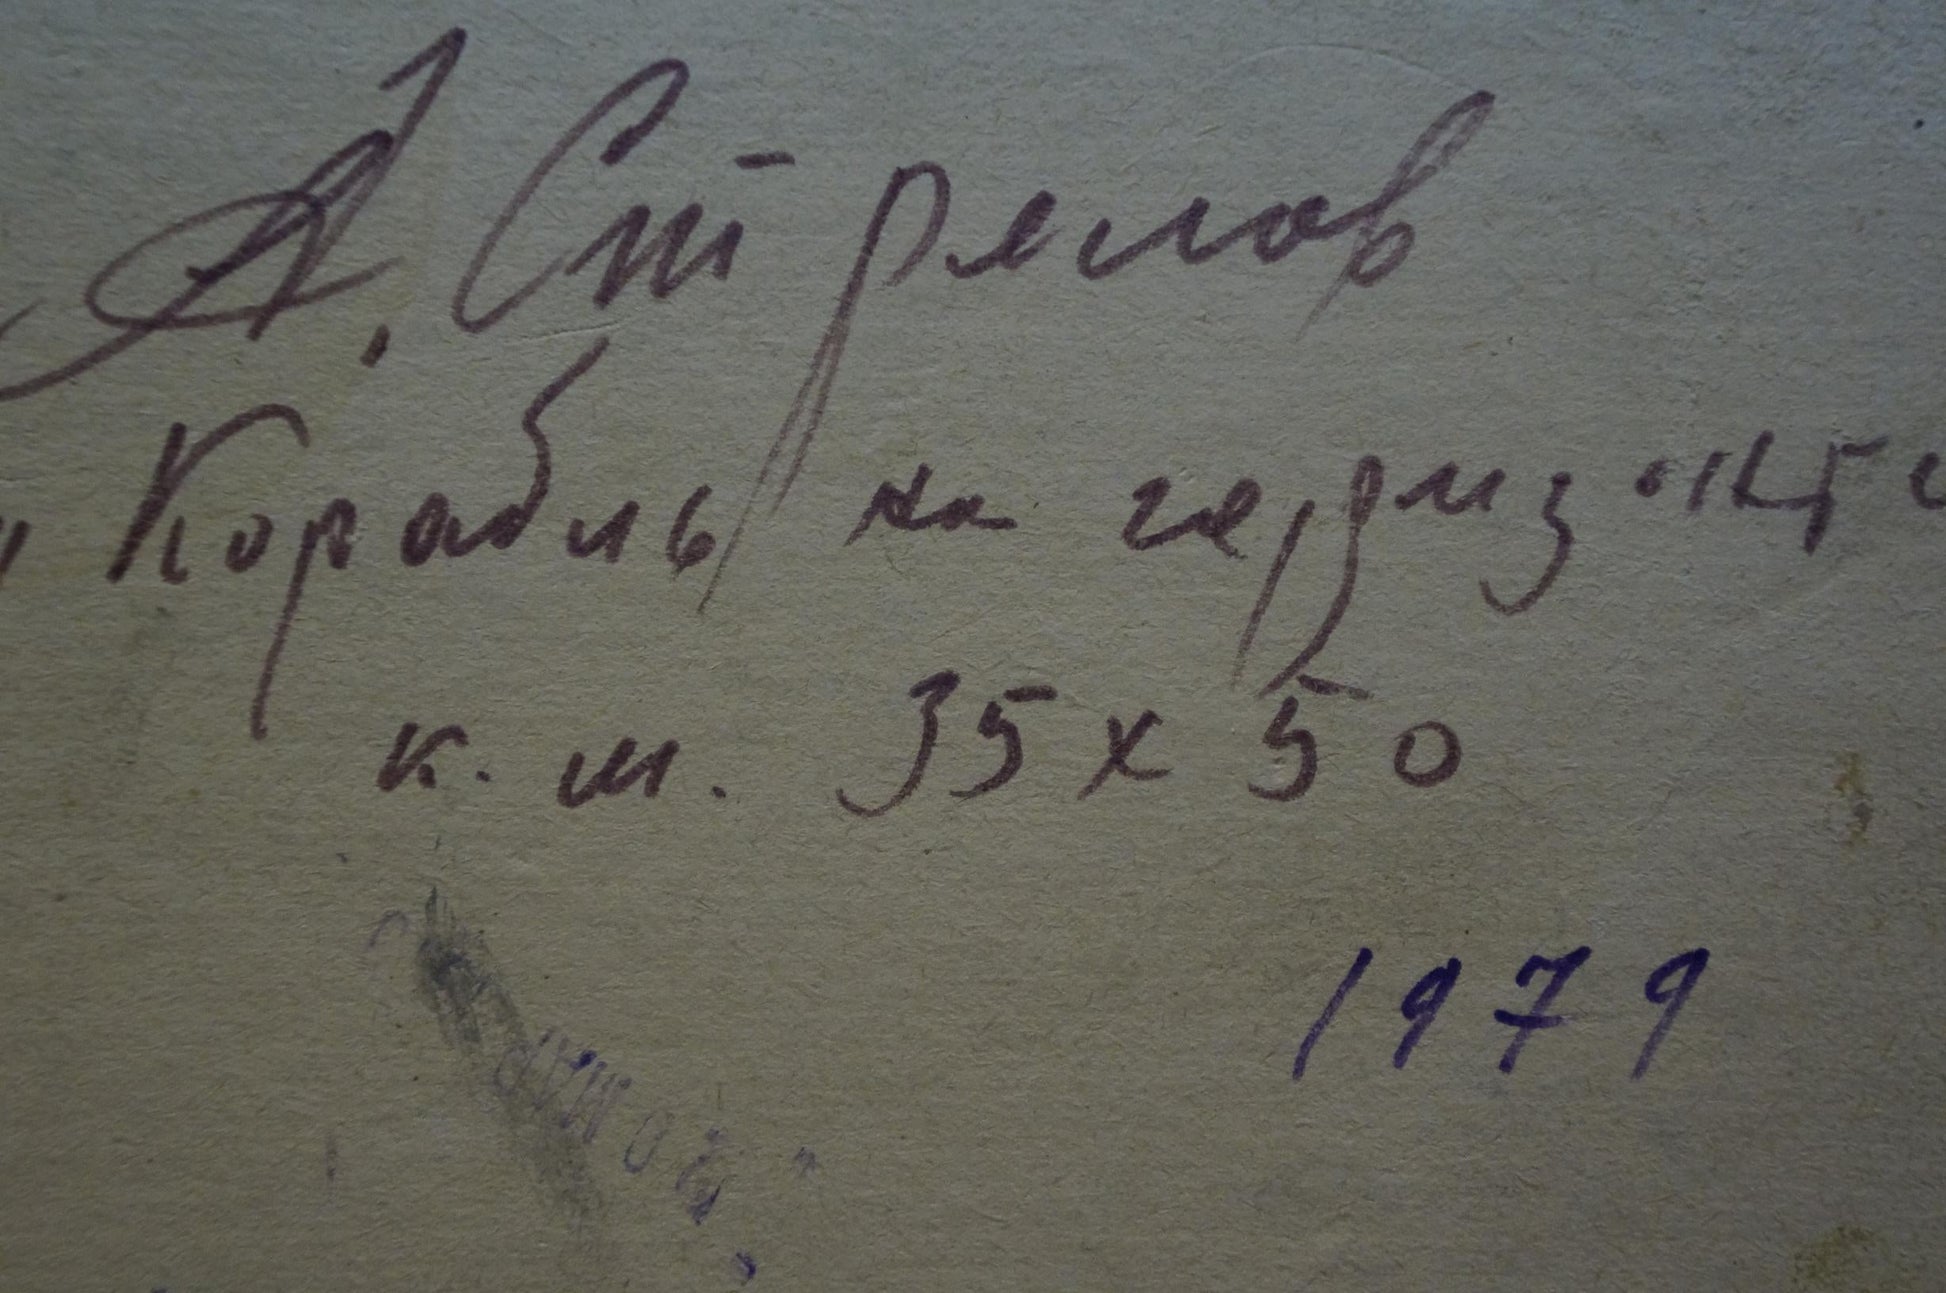 А. Стрелов
„Корабль на горизонте
к. м. 35 х 50
1979